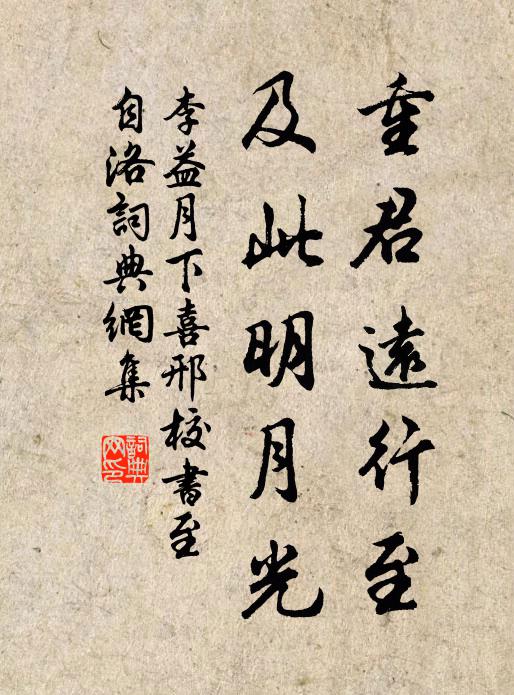 重君遠行至
及此明月光
李益月下喜邢校書至
自洛詞典網集
詞典
网印